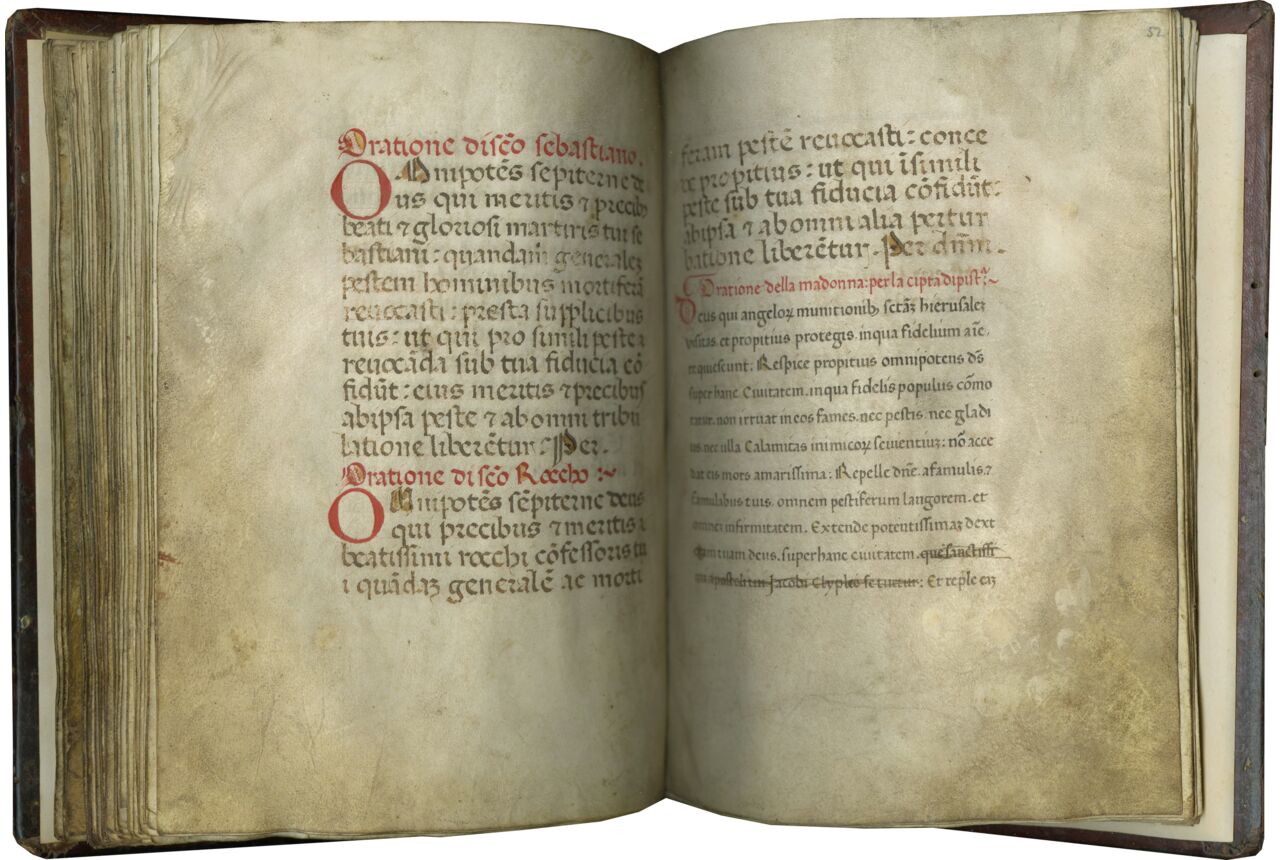 Oratione di sc̄o sebastiano.
Omnipotēs sēpiterne de
us qui meritis ⁊ precib
beati ⁊ gloriosi martiris tui se
bastiani : quandam generaleꝫ
pestem hominibus mortiferā
reuocasti : presta supplicibus
tuis : ut qui pro simili peste
reuocāda sub tua fiducia cō
fidūt : eius meritis ⁊ precibus
ab ipsa peste ⁊ ab omni tribu
latione liberētur : Per.
Oratione di sc̄o Roccho :~
Omnipotēs sēpiterne deus
qui precibus ⁊ meritis
beatissimi rocchi cōfessoris tu
i quādaꝫ generalē ac morti
52
feram pestē reuocasti : conce
de propitius : ut qui ī simili
peste sub tua fiducia cōfidūt :
ab ipsa ⁊ ab omni alia pertur
batione liberētur . Per dn̄m .
Oratione della madonna : per la cipta di pist.ͣ ~
Deus qui angeloꝝ munitionibꝫ sctāꝫ hierusaleꝫ
visitas et propitius protegis . in qua fidelium aīe .
requiescunt : Respice propitius omnipotens ds̄
super hanc Ciuitatem . in qua fidelis populus cōmo
ratur . non irruat in eos fames . nec pestis . nec gladi
us . nec ulla Calamitas inimicoꝝ seuientiuꝫ : nō acce
dat eis mors amarissima : Repelle dn̄e . a famulis . ⁊
famulabus tuis . omnem pestiferum langorem . et
omnem infirmitatem . Extende potentissimaꝫ dext
eram tuam deus . super hanc ciuitatem . que sanctissi
apostoli tui Jacobi Clypeo fetuetur : Et reple eaꝫ